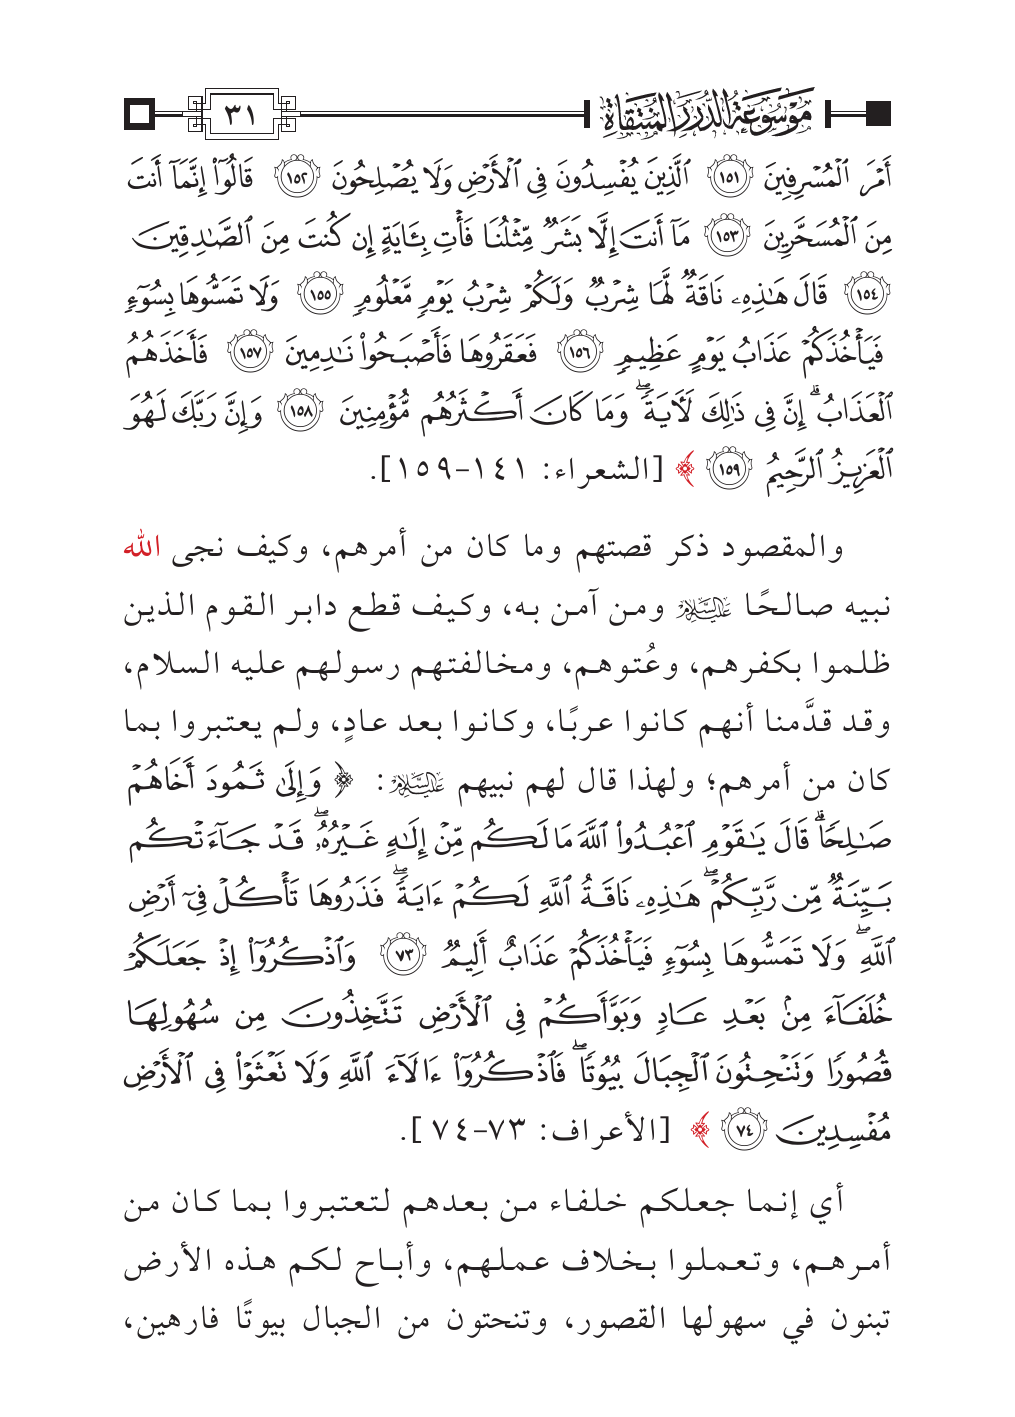 موسوعة الدرر المنتقاة
٣١
أَمْرَ ٱلْمُسْرِفِينَ ١٥١ ٱلَّذِينَ يُفْسِدُونَ فِى ٱلْأَرْضِ وَلَا يُصْلِحُونَ ١٥٢ قَالُوٓا۟ إِنَّمَآ أَنتَ
مِنَ ٱلْمُسَحَّرِينَ ١٥٣ مَآ أَنتَ إِلَّا بَشَرٌ مِّثْلُنَا فَأْتِ بِـَٔايَةٍ إِن كُنتَ مِنَ ٱلصَّـٰدِقِينَ
١٥٤ قَالَ هَـٰذِهِۦ نَاقَةٌ لَّهَا شِرْبٌ وَلَكُمْ شِرْبُ يَوْمٍ مَّعْلُومٍ ١٥٥ وَلَا تَمَسُّوهَا بِسُوٓءٍ
فَيَأْخُذَكُمْ عَذَابُ يَوْمٍ عَظِيمٍ ١٥٦ فَعَقَرُوهَا فَأَصْبَحُوا۟ نَـٰدِمِينَ ١٥٧ فَأَخَذَهُمُ
ٱلْعَذَابُ ۗ إِنَّ فِى ذَٰلِكَ لَـَٔايَةً ۖ وَمَا كَانَ أَكْثَرُهُم مُّؤْمِنِينَ ١٥٨ وَإِنَّ رَبَّكَ لَهُوَ
ٱلْعَزِيزُ ٱلرَّحِيمُ ١٥٩ ﴾ [الشعراء: ١٤١-١٥٩].
والمقصود ذكر قصتهم وما كان من أمرهم، وكيف نجى الله
نبيه صالحًا عليه السلام ومن آمن به، وكيف قطع دابر القوم الذين
ظلموا بكفرهم، وعُتوهم، ومخالفتهم رسولهم عليه السلام،
وقد قدَّمنا أنهم كانوا عربًا، وكانوا بعد عادٍ، ولم يعتبروا بما
كان من أمرهم؛ ولهذا قال لهم نبيهم عليه السلام: ﴿ وَإِلَىٰ ثَمُودَ أَخَاهُمْ
صَـٰلِحًا ۗ قَالَ يَـٰقَوْمِ ٱعْبُدُوا۟ ٱللَّهَ مَا لَكُم مِّنْ إِلَـٰهٍ غَيْرُهُۥ ۖ قَدْ جَآءَتْكُم
بَيِّنَةٌ مِّن رَّبِّكُمْ ۖ هَـٰذِهِۦ نَاقَةُ ٱللَّهِ لَكُمْ ءَايَةً ۖ فَذَرُوهَا تَأْكُلْ فِىٓ أَرْضِ
ٱللَّهِ ۖ وَلَا تَمَسُّوهَا بِسُوٓءٍ فَيَأْخُذَكُمْ عَذَابٌ أَلِيمٌ ٧٣ وَٱذْكُرُوٓا۟ إِذْ جَعَلَكُمْ
خُلَفَآءَ مِنۢ بَعْدِ عَادٍ وَبَوَّأَكُمْ فِى ٱلْأَرْضِ تَتَّخِذُونَ مِن سُهُولِهَا
قُصُورًا وَتَنْحِتُونَ ٱلْجِبَالَ بُيُوتًا ۖ فَٱذْكُرُوٓا۟ ءَالَآءَ ٱللَّهِ وَلَا تَعْثَوْا۟ فِى ٱلْأَرْضِ
مُفْسِدِينَ ٧٤ ﴾ [الأعراف: ٧٣-٧٤ ].
أي إنما جعلكم خلفاء من بعدهم لتعتبروا بما كان من
أمرهم، وتعملوا بخلاف عملهم، وأباح لكم هذه الأرض
تبنون في سهولها القصور، وتنحتون من الجبال بيوتًا فارهين،